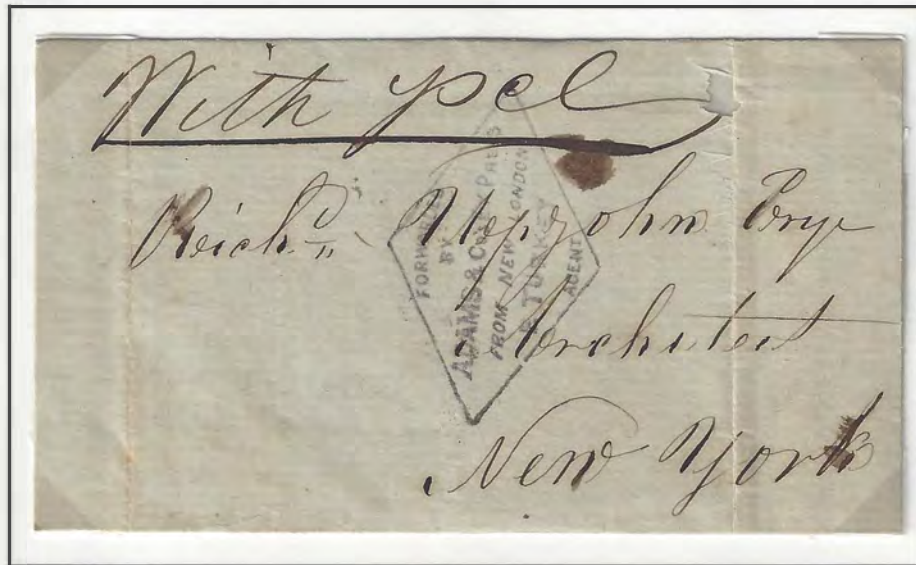 With pcl
Rich^d Upjohn Esqr
Architect
New York
FORWARDED
BY
ADAMS & CO'S EXPRESS
FROM NEW LONDON
TURKEY
AGENT